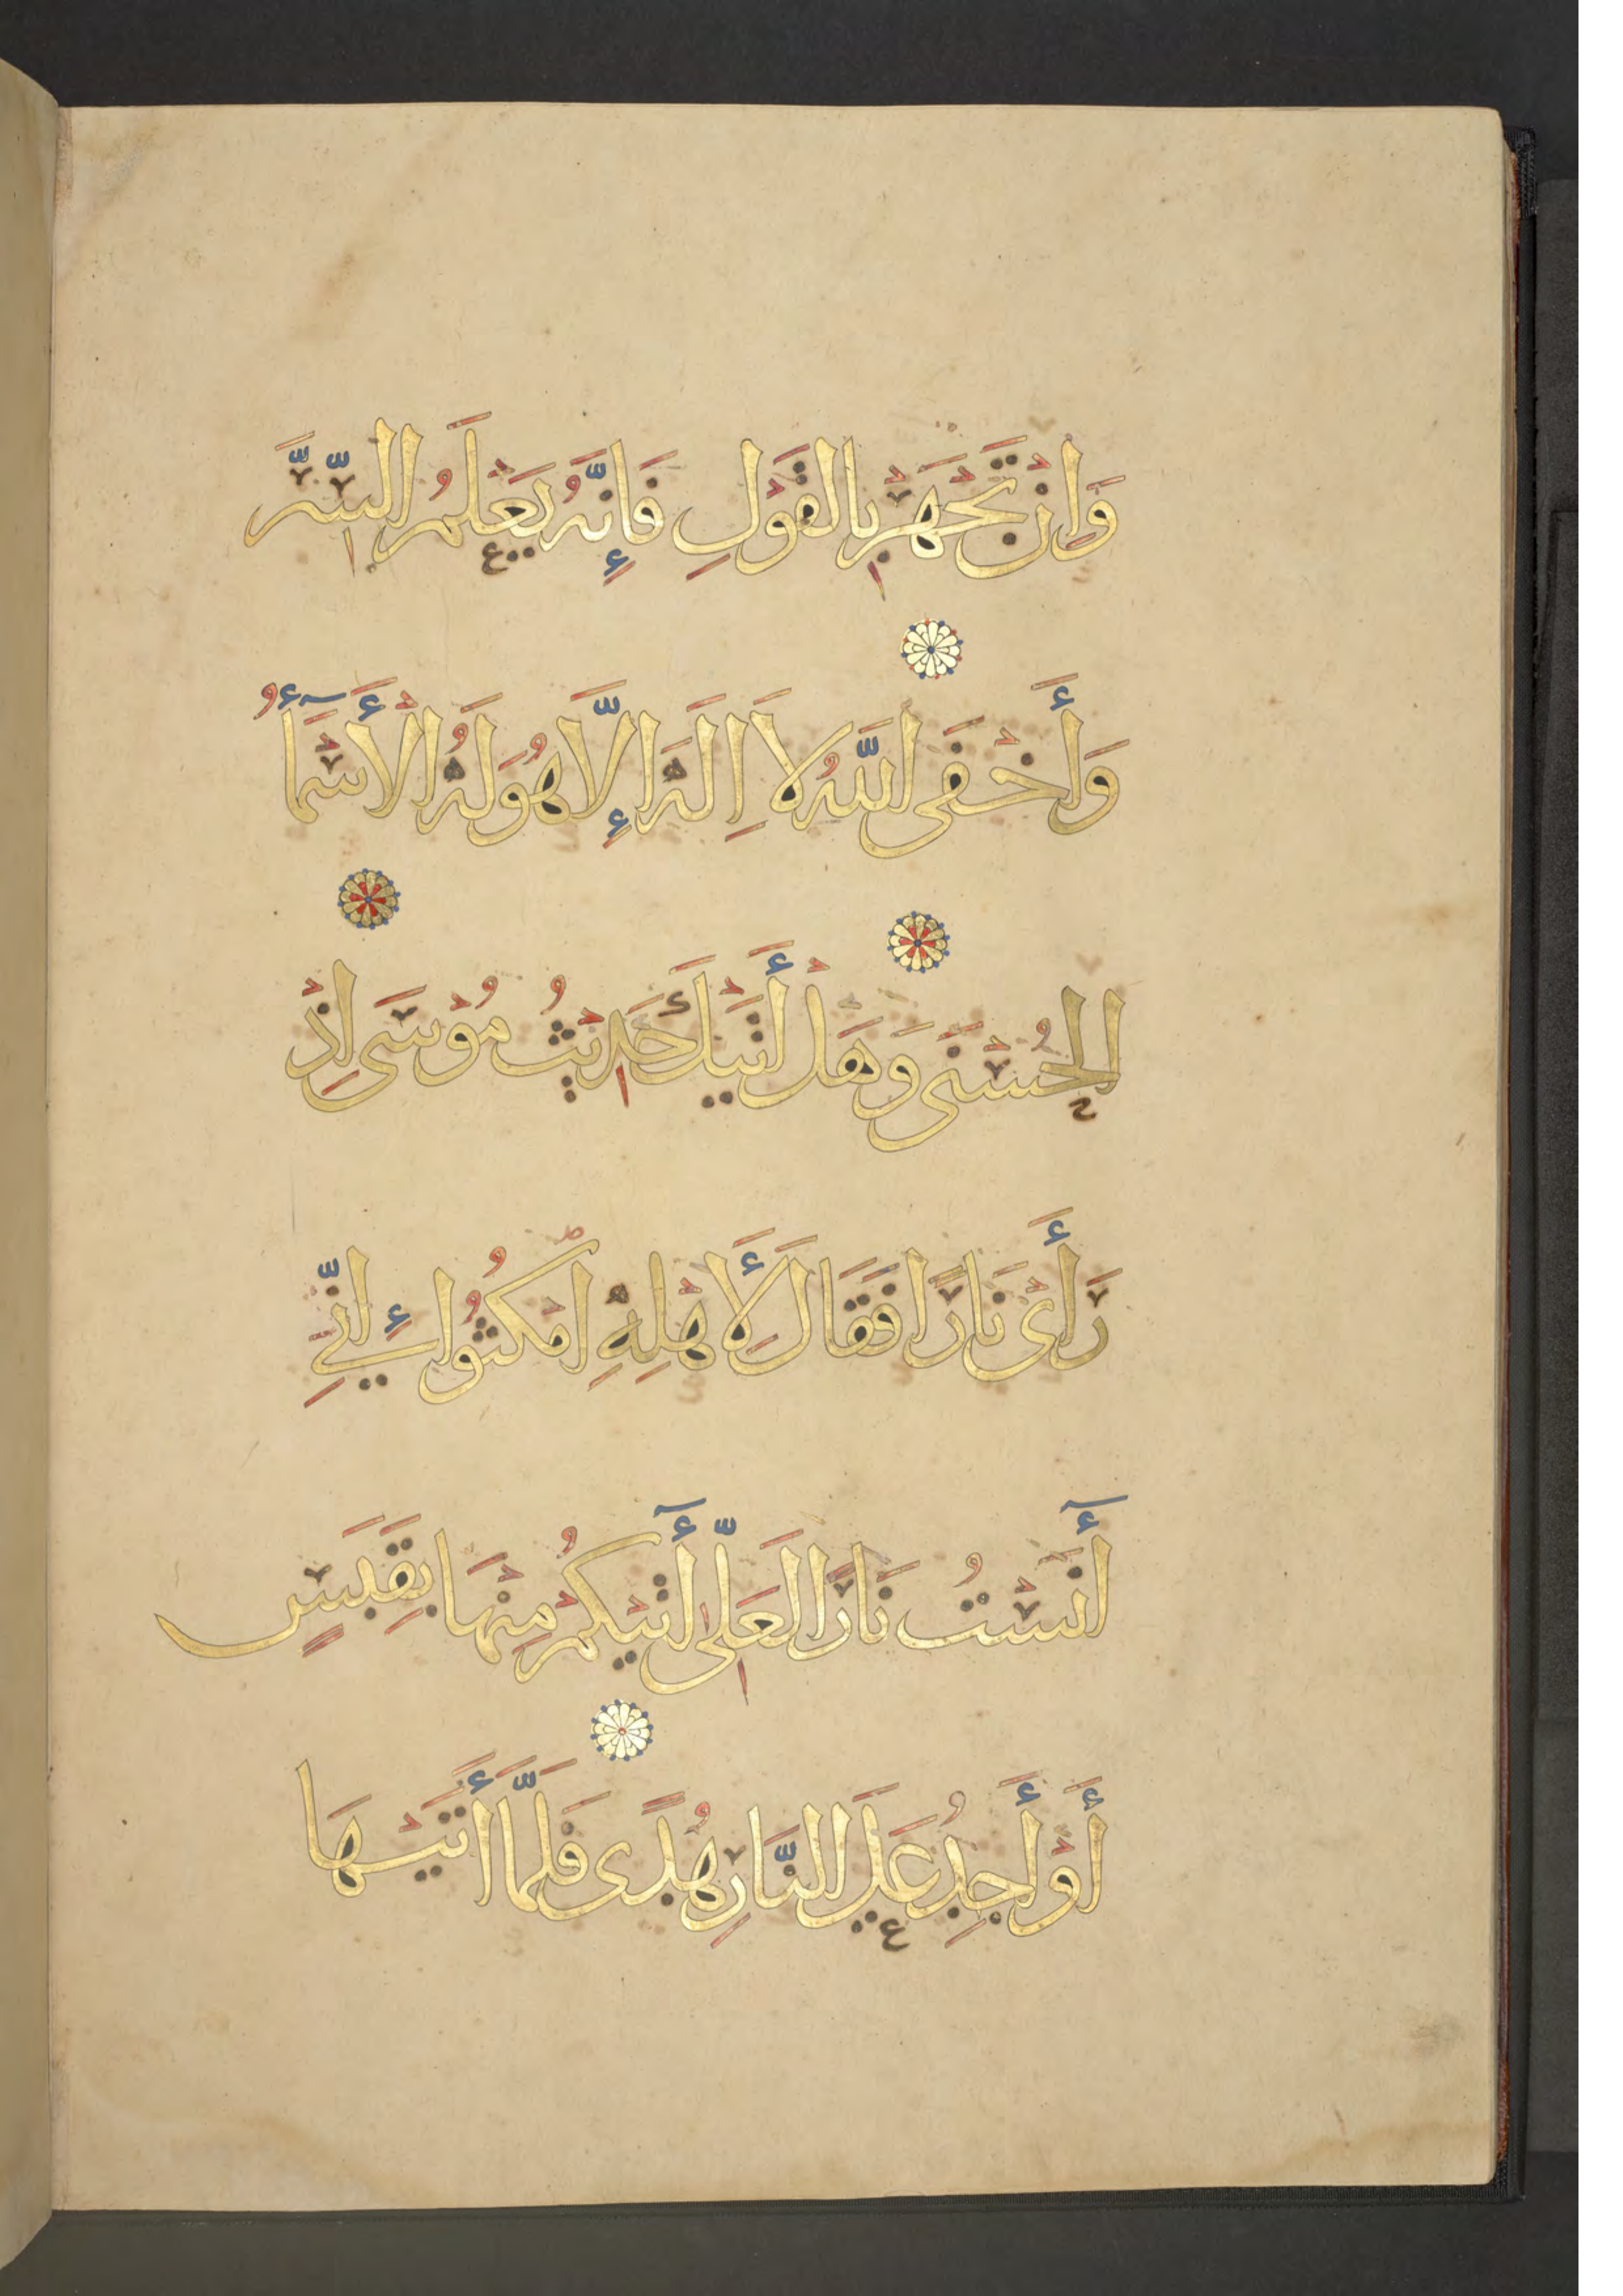 وَاِنْ تَجْهَرْ بِالْقَوْلِ فَإِنَّهُ يَعْلَمُ السِّرَّ
وَأَخْفَى اللَّهُ لَا اِلَهَ إِلَّا هُوَ لَهُ الْأَسْمَآءُ
الْحُسْنَى وَهَلْ أَتَيْكَ حَدِيْثُ مُوْسَى اِذْ
رَأَى نَارًا فَقَالَ لِأَهْلِهِ امْكُثُوْا إِنِّي
أٓنَسْتُ نَارًا لَعَلِّى أٓتِيْكُمْ مِنْهَا بِقَبَسٍ
أَوْ أَجِدُ عَلَى النَّارِ هُدًى فَلَمَّا أَتَيْهَا